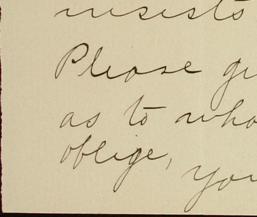 insists
Please gi
as to who
oblige,
you